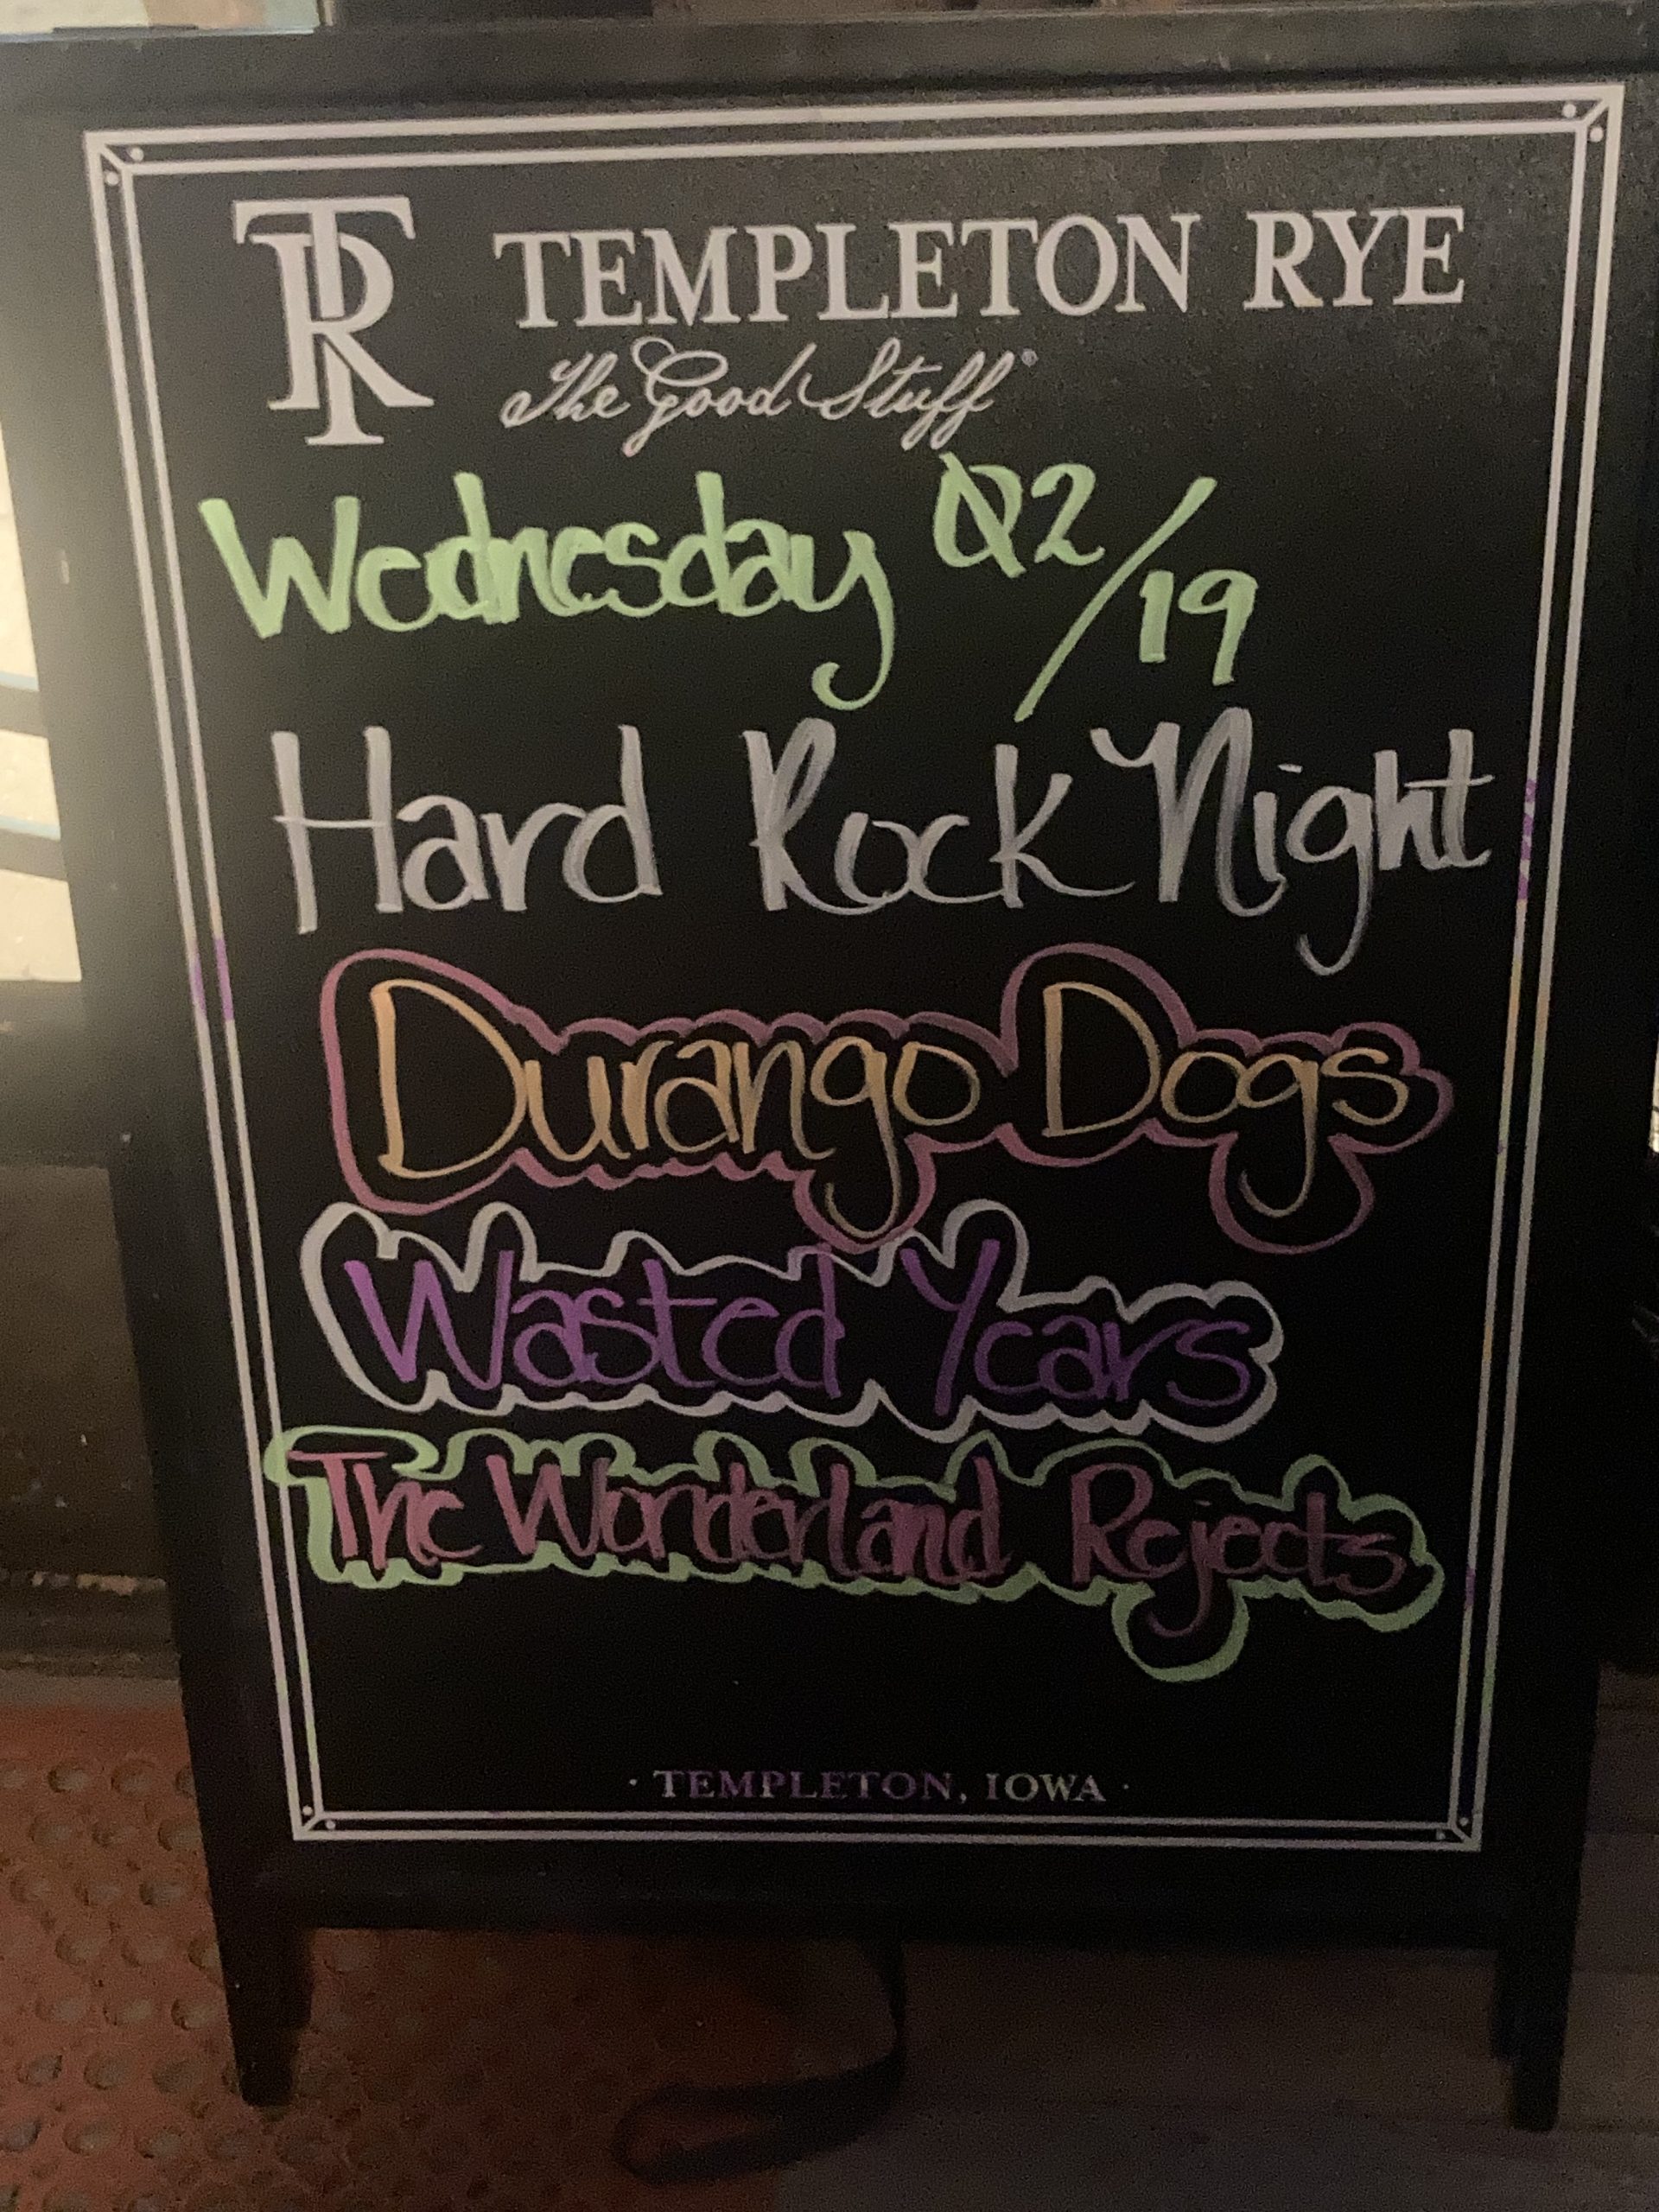 TR TEMPLETON RYE
The Good Stuff®
Wednesday 02/19
Hard Rock Night
Durango Dogs
Wasted Years
The Wonderland Rejects
· TEMPLETON, IOWA ·